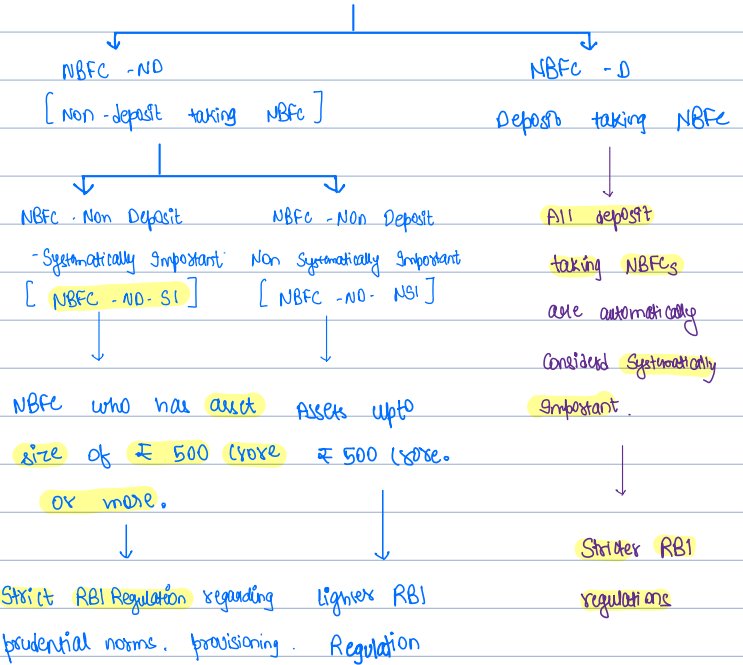 NBFC - ND
[Non-deposit taking NBFC]
NBFC - Non Deposit
- Systematically Important
[NBFC - ND - SI]
NBFC who has asset
size of ₹ 500 crore
or more.
Strict RBI Regulation regarding
prudential norms, provisioning.
NBFC - Non Deposit
Non Systematically Important
[NBFC - ND - NSI]
Assets upto
₹ 500 crore.
Lighter RBI
Regulation
NBFC - D
Deposit taking NBFC
All deposit
taking NBFCs
are automatically
considerd Systematically
Important.
Stricter RBI
regulations